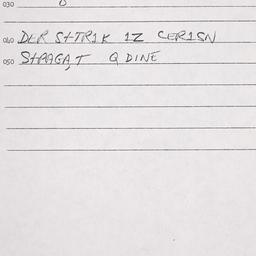 030
040 DER SHTRIK IZ CERISN
050 SHPAGA,T Q DINE